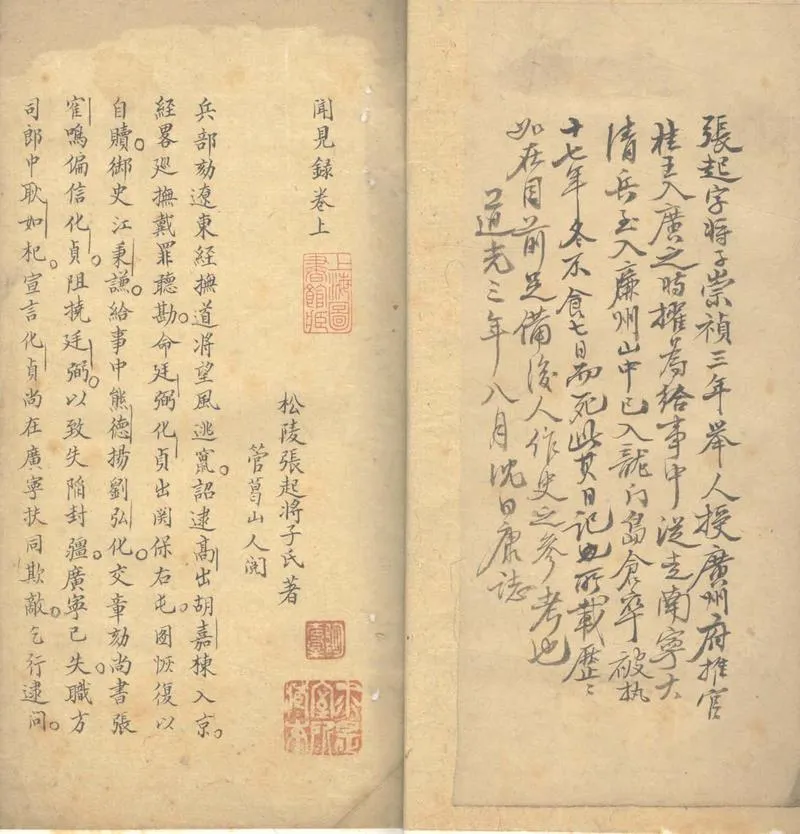 張起字将子崇禎三年举人授廣州府推官
桂王入廣之時擢為給事中從走南寧大
清兵至入廉州山中已入龍门島倉卒被执
十七年冬不食七日而死此其日記也所載歷〻
如在目前足備後人作史之參考也
道光三年八月沈曰康誌
聞見録卷上
上海圖
書館藏
松陵張起将子氏著
菅葛山人閱
兵部劾遼東經撫道将望風逃竄。詔逮高出胡嘉棟入京。
經畧廵撫戴罪聽勘。命廷弼化貞出関保右屯。图恢復以
自贖。御史江秉謙給事中熊德揚劉弘化交章劾尚書張
寉鳴偏信化貞。阻撓廷弼。以致失陷封疆。廣寧已失。職方
司郎中耿如杞。宣言化貞尚在廣寧扶同欺敵。乞行逮問。